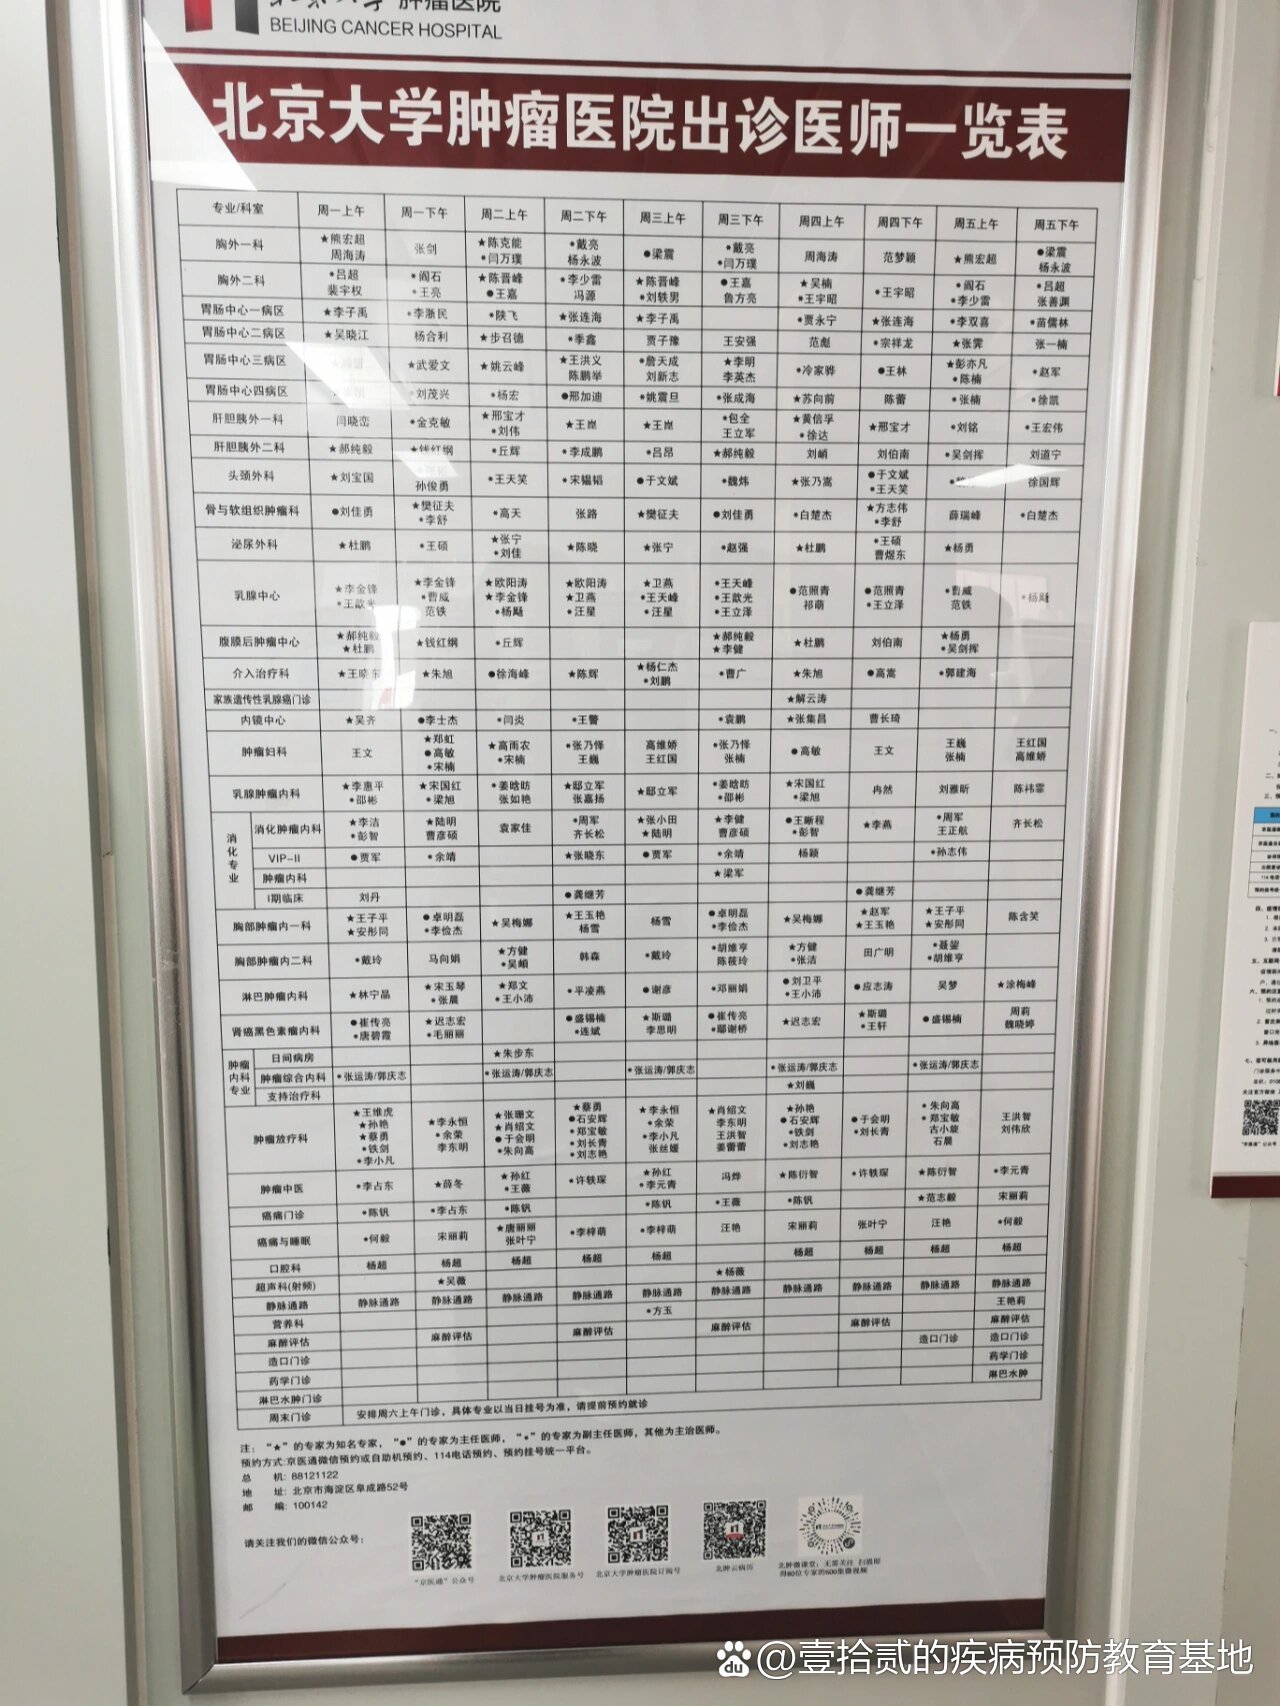 肿瘤医院
BEIJING CANCER HOSPITAL
北京大学肿瘤医院出诊医师一览表
专业/科室 周一上午 周一下午 周二上午 周二下午 周三上午 周三下午 周四上午 周四下午 周五上午 周五下午
胸外一科 ★熊宏超 周海涛 张剑 ★陈克能 *闫万璞 *戴亮 杨永波 ●梁震 *戴亮 *闫万璞 周海涛 范梦颖 ★熊宏超 ●梁震 杨永波
胸外二科 *吕超 裴宇权 *阎石 *王亮 ★陈晋峰 ●王嘉 *李少雷 冯源 ★陈晋峰 *刘轶男 ●王嘉 鲁方亮 ★吴楠 *王宇昭 *王宇昭 *阎石 *李少雷 *吕超 张善渊
胃肠中心一病区 ★李子禹 *李浙民 *陕飞 ★张连海 ★李子禹 *贾永宁 ★张连海 *李双喜 *苗儒林
胃肠中心二病区 ★吴晓江 杨合利 ★步召德 *季鑫 贾子豫 王安强 范彪 *宗祥龙 ★张霁 张一楠
胃肠中心三病区 ★武爱文 ★姚云峰 ★王洪义 陈鹏举 *詹天成 刘新志 ★李明 李英杰 *冷家骅 ●王林 ★彭亦凡 *陈楠 *赵军
胃肠中心四病区 *刘茂兴 *杨宏 ●邢加迪 *姚震旦 *张成海 ★苏向前 陈蕾 *张楠 *徐凯
肝胆胰外一科 闫晓峦 *金克敏 ★邢宝才 *刘伟 ★王崑 ★王崑 *包全 王立军 ★黄信孚 *徐达 ★邢宝才 *刘铭 *王宏伟
肝胆胰外二科 ★郝纯毅 ★钱红纲 *丘辉 *李成鹏 *吕昂 ★郝纯毅 刘峭 刘伯南 *吴剑挥 刘道宁
头颈外科 ★刘宝国 孙俊勇 *王天笑 *宋韫韬 ●于文斌 *魏炜 ★张乃嵩 ●于文斌 *王天笑 徐国辉
骨与软组织肿瘤科 ●刘佳勇 ★樊征夫 *李舒 *高天 张路 ★樊征夫 ●刘佳勇 *白楚杰 ★方志伟 *李舒 薛瑞峰 *白楚杰
泌尿外科 ★杜鹏 *王硕 ★张宁 *刘佳 ★陈晓 ★张宁 *赵强 ★杜鹏 *王硕 曹煜东 ★杨勇
乳腺中心 ★李金锋 *王歆光 ★李金锋 *曹威 范铁 ★欧阳涛 ★李金锋 *杨飏 ★欧阳涛 ★卫燕 *汪星 ★卫燕 *王天峰 *汪星 *王天峰 *王歆光 *王立泽 ●范照青 祁萌 ●范照青 *王立泽 *曹威 范铁 *杨飏
腹膜后肿瘤中心 ★郝纯毅 ★杜鹏 ★钱红纲 *丘辉 ★郝纯毅 ★李健 ★杜鹏 刘伯南 ★杨勇 *吴剑挥
介入治疗科 ★王晓东 ★朱旭 ●徐海峰 ★陈辉 ★杨仁杰 *刘鹏 *曹广 ★朱旭 ●高嵩 *郭建海
家族遗传性乳腺癌门诊 ★解云涛
内镜中心 ★吴齐 ●李士杰 *闫炎 *王警 *袁鹏 ★张集昌 曹长琦
肿瘤妇科 王文 ★郑虹 ●高敏 *宋楠 ★高雨农 *宋楠 *张乃怿 王巍 高维娇 王红国 *张乃怿 张楠 ●高敏 王文 王巍 张楠 王红国 高维娇
乳腺肿瘤内科 ★李惠平 *邵彬 ★宋国红 *梁旭 *姜晗昉 张如艳 ★邸立军 张嘉扬 ★邸立军 *姜晗昉 *邵彬 ★宋国红 *梁旭 冉然 刘雅昕 陈祎霏
消化专业
消化肿瘤内科 ★李洁 *彭智 ★陆明 曹彦硕 袁家佳 *周军 齐长松 ★张小田 ★陆明 ★李健 曹彦硕 ●王晰程 *彭智 ★李燕 *周军 王正航 齐长松
VIP-II ●贾军 *余靖 ★张晓东 ●贾军 *余靖 杨颖 *孙志伟
肿瘤内科 ★梁军
I期临床 刘丹 ●龚继芳 ●龚继芳
胸部肿瘤内一科 ★王子平 ★安彤同 ●卓明磊 *李俭杰 ★吴梅娜 ★王玉艳 杨雪 杨雪 ●卓明磊 *李俭杰 ★吴梅娜 ★赵军 ★王玉艳 ★王子平 ★安彤同 陈含笑
胸部肿瘤内二科 *戴玲 马向娟 ★方健 *吴頔 韩森 *戴玲 *胡维亨 陈筱玲 ★方健 *张洁 田广明 *聂鋆 *胡维亨
淋巴肿瘤内科 ★林宁晶 ★宋玉琴 *张晨 ★郑文 *王小沛 *平凌燕 ●谢彦 *邓丽娟 ●刘卫平 *王小沛 ●应志涛 吴梦 ★涂梅峰
肾癌黑色素瘤内科 ●崔传亮 *唐碧霞 ★迟志宏 *毛丽丽 ●盛锡楠 *连斌 ★斯璐 李思明 ●崔传亮 *鄢谢桥 ★迟志宏 ★斯璐 *王轩 ●盛锡楠 周莉 魏晓婷
肿瘤内科专业
日间病房 ★朱步东
肿瘤综合内科 *张运涛/郭庆志 *张运涛/郭庆志 *张运涛/郭庆志 *张运涛/郭庆志 *张运涛/郭庆志
支持治疗科 ★刘巍
肿瘤放疗科 ★王维虎 ★孙艳 ★蔡勇 *铁剑 *李小凡 ★李永恒 *余荣 李东明 ★张珊文 ★肖绍文 ●于会明 *朱向高 ★蔡勇 ●石安辉 *郑宝敏 *刘长青 *刘志艳 ★李永恒 *余荣 *李小凡 张丝媛 ★肖绍文 李东明 王洪智 姜蕾蕾 ★孙艳 ●石安辉 *铁剑 *刘志艳 ●于会明 *刘长青 *朱向高 *郑宝敏 古小旋 石晨 王洪智 刘伟欣
肿瘤中医 *李占东 ★薛冬 ★孙红 *王薇 *许轶琛 ★孙红 *李元青 冯烨 ★陈衍智 *许轶琛 ★陈衍智 *李元青
癌痛门诊 *陈钒 *李占东 *陈钒 *陈钒 *王薇 *陈钒 ★范志毅 宋丽莉
癌痛与睡眠 *何毅 宋丽莉 ★唐丽丽 张叶宁 *李梓萌 *李梓萌 汪艳 宋丽莉 张叶宁 汪艳 *何毅
口腔科 杨超 杨超 杨超 杨超 杨超 杨超 杨超 杨超 杨超
超声科(射频) ★吴薇 ★杨薇
静脉通路 静脉通路 静脉通路 静脉通路 静脉通路 静脉通路 静脉通路 静脉通路 静脉通路 静脉通路 静脉通路
营养科 *方玉 王艳莉
麻醉评估 麻醉评估 麻醉评估 麻醉评估 麻醉评估 麻醉评估
造口门诊 造口门诊 造口门诊
药学门诊 药学门诊
淋巴水肿门诊 淋巴水肿
周末门诊 安排周六上午门诊，具体专业以当日挂号为准，请提前预约就诊
注：“★”的专家为知名专家，“●”的专家为主任医师，“*”的专家为副主任医师，其他为主治医师。
预约方式:京医通微信预约或自助机预约、114电话预约、预约挂号统一平台。
总 机: 88121122
地 址: 北京市海淀区阜成路52号
邮 编: 100142
请关注我们的微信公众号：
“京医通”公众号 北京大学肿瘤医院服务号 北京大学肿瘤医院订阅号 北肿云病历 北肿微课堂：无需关注 扫描即得80位专家的600集微视频
@壹拾贰的疾病预防教育基地